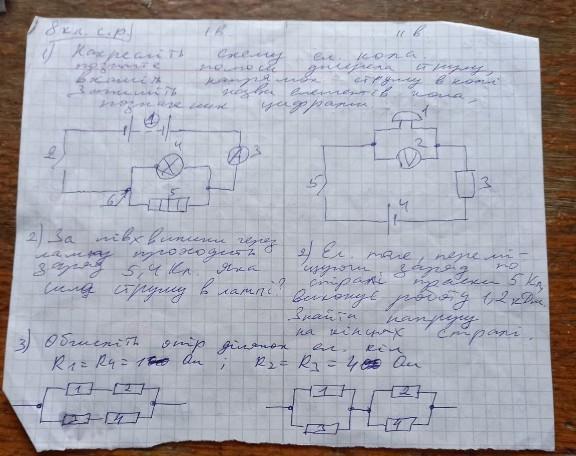 8 кл. с.р. I в II в
1) Накресліть схему ел. кола
позначте полюси джерела струму,
вкажіть напрямок струму в колі
Запишіть назви елементів кола,
позначених цифрами
1
2
4
A 3
5
6
1
V 2
3
4
5
2) За півхвилини через
лампу проходить
заряд 5,4 Кл. Яка
сила струму в лампі?
2) Ел. поле, перемі-
щуючи заряд по
спіралі праски 5 Кл,
виконує роботу 1,2 кДж
Знайти напругу
на кінцях спіралі.
3) Обчисліть опір ділянок ел. кіл
R1 = R4 = 1 Ом ; R2 = R3 = 4 Ом
1 2
3 4
1 2
3 4